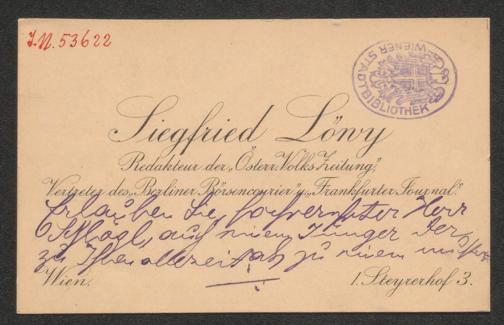 I.N. 53622
WIENER STADTBIBLIOTHEK
Siegfried Löwy
Redakteur der „Österr. Volks Zeitung",
Vertreter des „Berliner Börsencourier" u. „Frankfurter Journal".
Erlauben Sie, hochverehrter Herr
auch einem Jünger der
zu Ihnen allezeit als zu einem
Wien.
I. Steyrerhof 3.